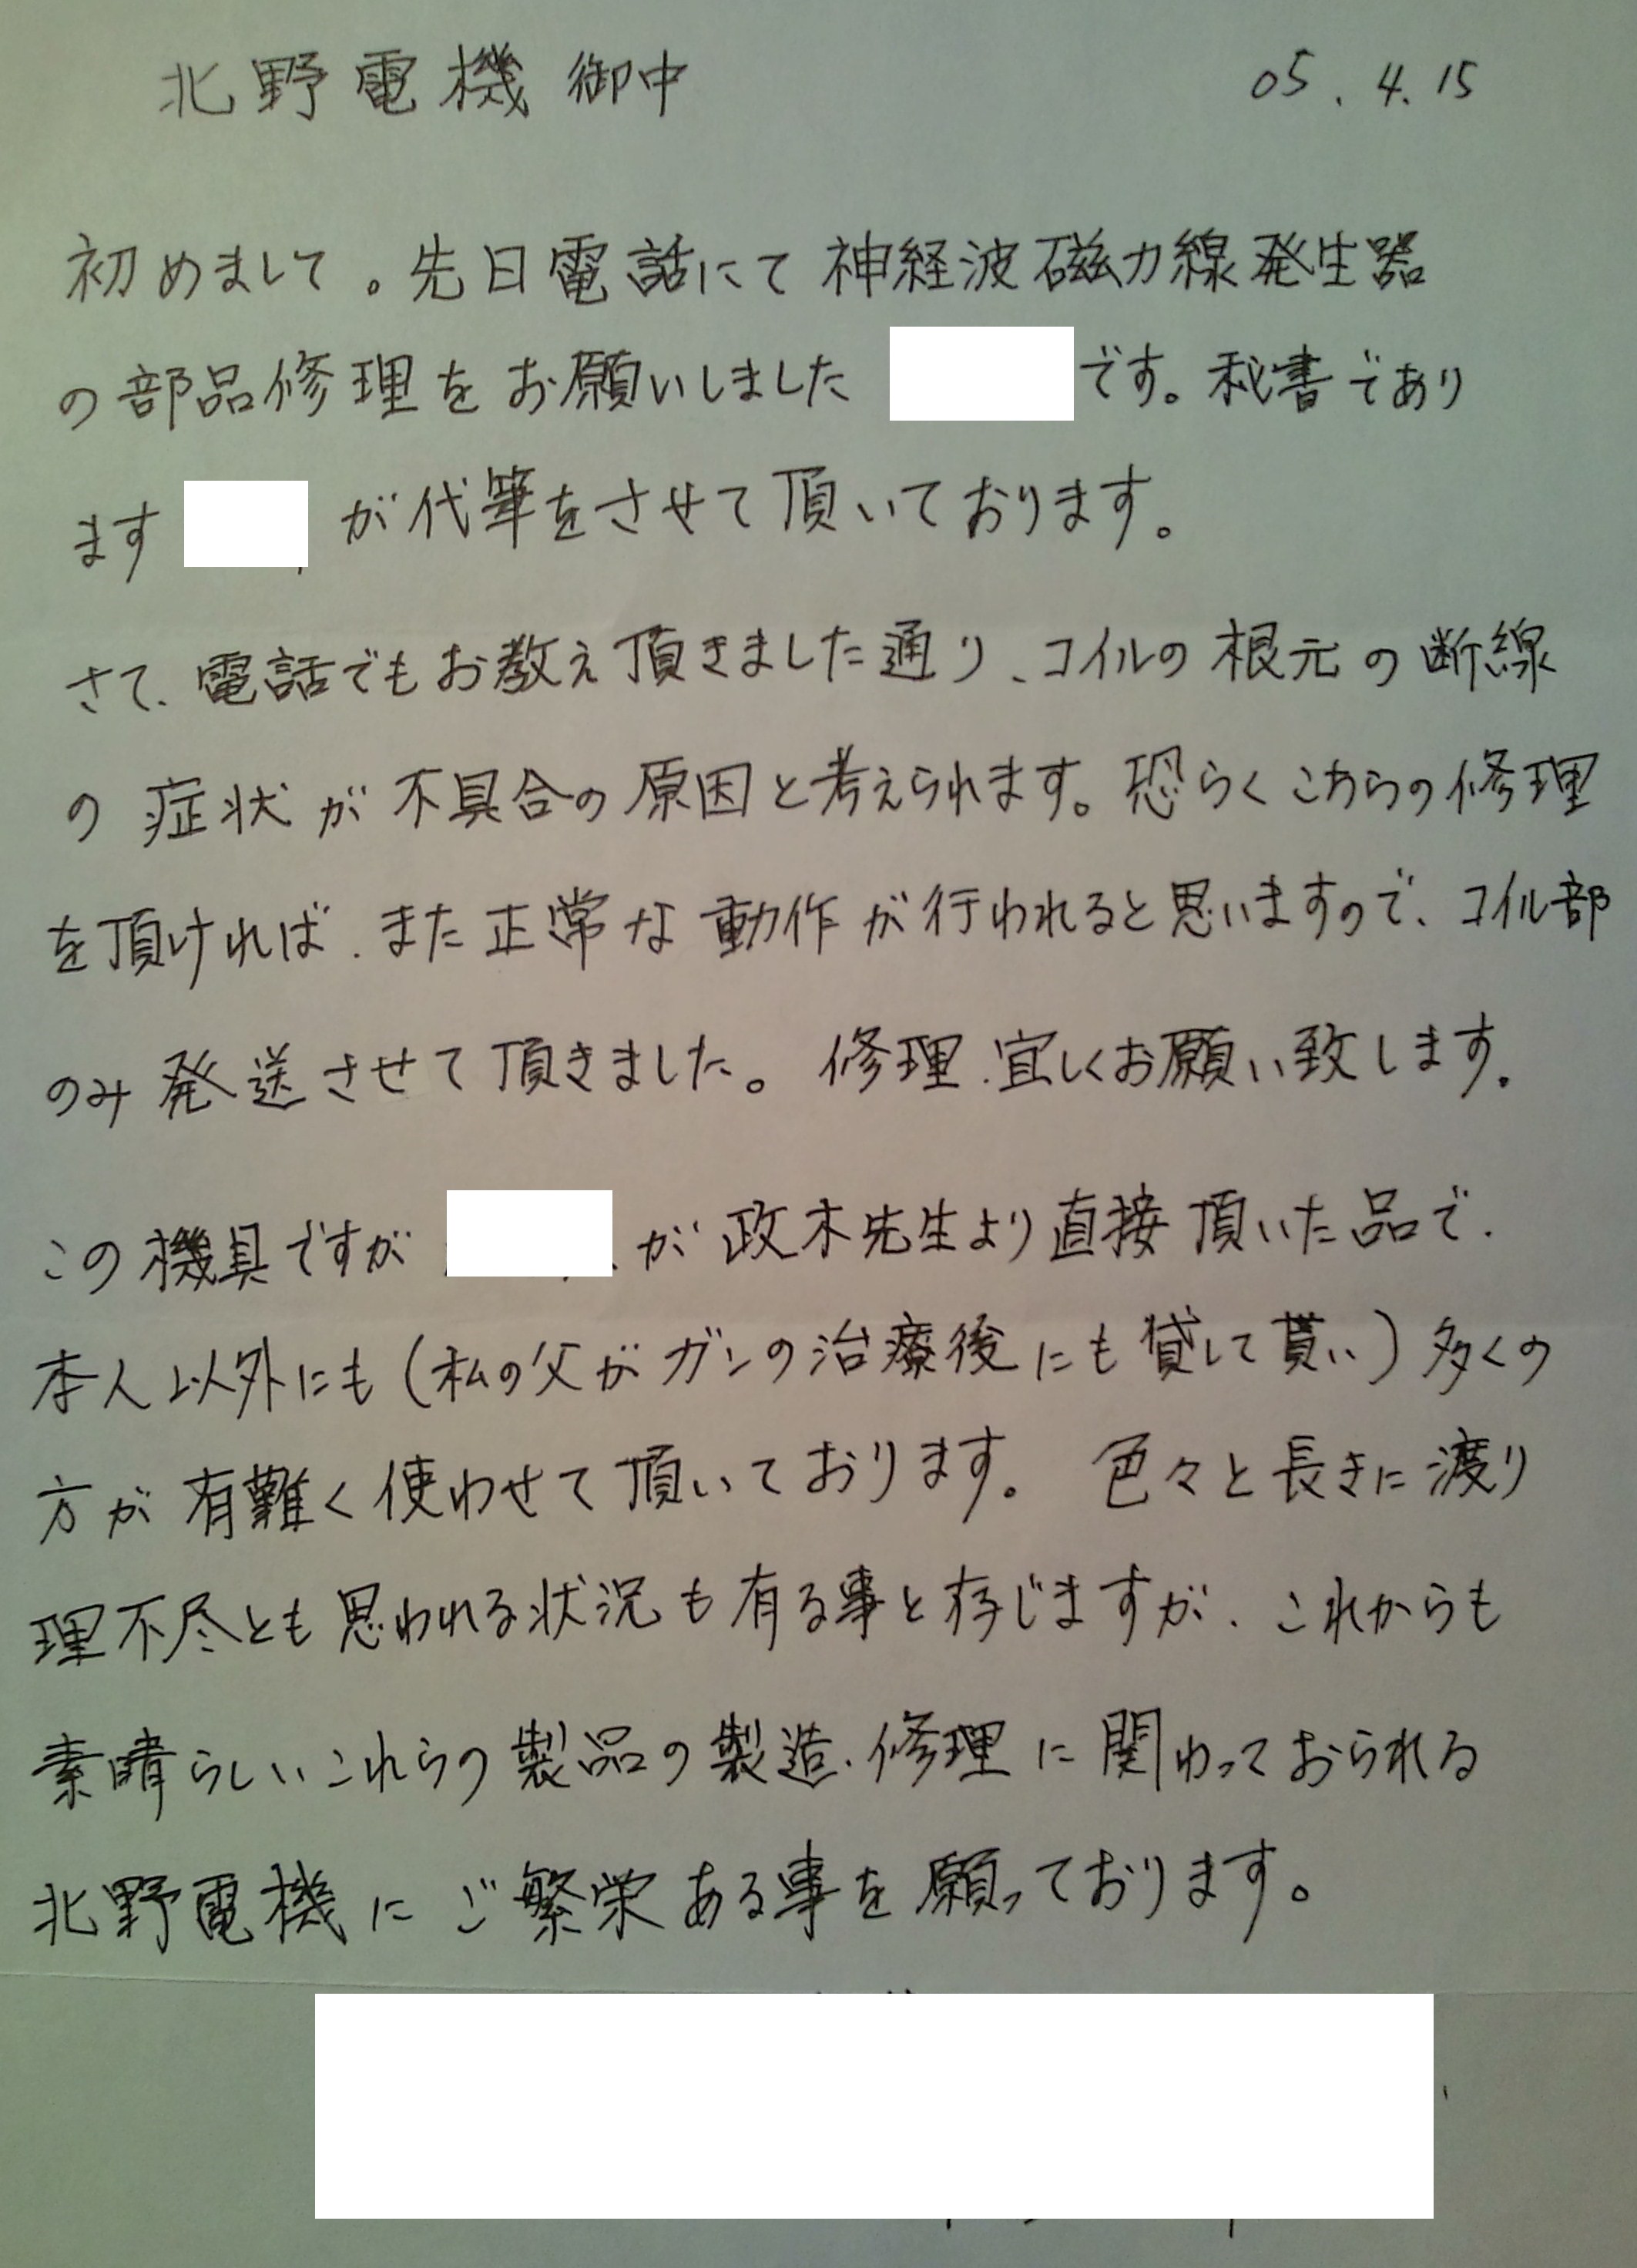 北野電機 御中 05.4.15
初めまして。先日電話にて神経波磁力線発生器
の部品修理をお願いしました です。秘書であり
ます が代筆をさせて頂いております。
さて、電話でもお教え頂きました通り、コイルの根元の断線
の症状が不具合の原因と考えられます。恐らくこちらの修理
を頂ければ、また正常な動作が行われると思いますので、コイル部
のみ発送させて頂きました。修理、宜しくお願い致します。
この機具ですが が政木先生より直接頂いた品で、
本人以外にも(私の父がガンの治療後にも貸して貰い)多くの
方が有難く使わせて頂いております。色々と長きに渡り
理不尽とも思われる状況も有る事と存じますが、これからも
素晴らしいこれらの製品の製造、修理に関わっておられる
北野電機にご繁栄ある事を願っております。